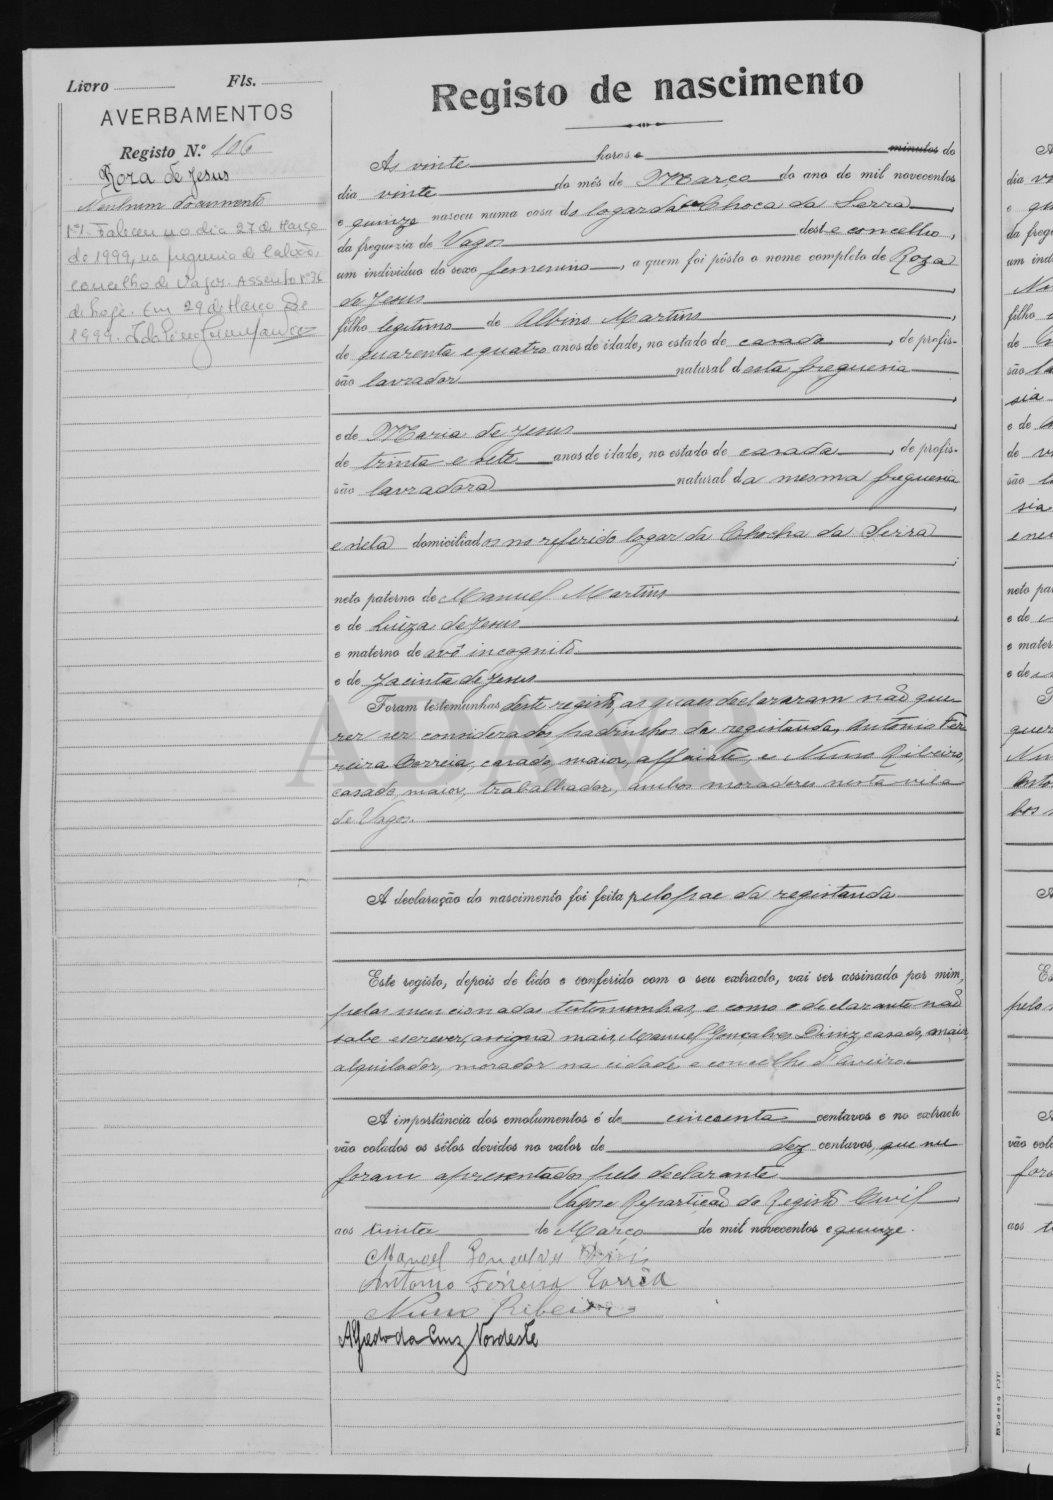 Livro Fls.
AVERBAMENTOS
Registo N.º 106
Roza de Jesus
Nenhum documento
Nº1. Faleceu no dia 27 de Março
de 1999, na freguesia de Calvão,
concelho de Vagos. Assento nº 36
de hoje. Em 29 de Março de
1999.
Registo de nascimento
Ás vinte horas e minutos do
dia vinte do mês de Março do ano de mil novecentos
e quinze nasceu numa casa do logar da Choca da Serra
da freguezia de Vagos deste concelho,
um individuo do sexo femenino, a quem foi pôsto o nome completo de Roza
de Jesus
filho legitimo de Albino Martins
de quarenta e quatro anos de idade, no estado de casado, de profis-
são lavrador natural desta freguesia
e de Maria de Jesus
de trinta e sete anos de idade, no estado de casada, de profis-
são lavradora natural da mesma freguesia
e nela domiciliados no referido logar da Chocha da Serra
neto paterno de Manuel Martins
e de Luiza de Jesus
e materno de avô incognito
e de Jacinta de Jesus
Foram testemunhas deste registo, as quaes declararam não que-
rer ser considerados padrinhos da registanda, Antonio Fer-
reira Correia, casado, maior, alfaiate, e Nuno Ribeiro,
casado, maior, trabalhador, ambos moradores nesta vila
de Vagos.
A declaração do nascimento foi feita pelo pae da registanda
Este registo, depois de lido e conferido com o seu extracto, vai ser assinado por mim,
pelas mencionadas testemunhas, e como o declarante não
sabe escrever, assigna mais, Manuel Gonçalves Diniz, casado, maior,
alquilador, morador na cidade e concelho d'Aveiro
A importância dos emolumentos é de cincoenta centavos e no extracto
vão colados os sêlos devidos no valor de dez centavos, que me
foram apresentados pelo declarante
Vagos e Repartição do Registo Civil
aos trinta de Março de mil novecentos e quinze.
Manoel Goncalves Diniz
Antonio Ferreira Corrêa
Nuno Ribeiro
Alfredo da Cruz Nordeste
ADAVR